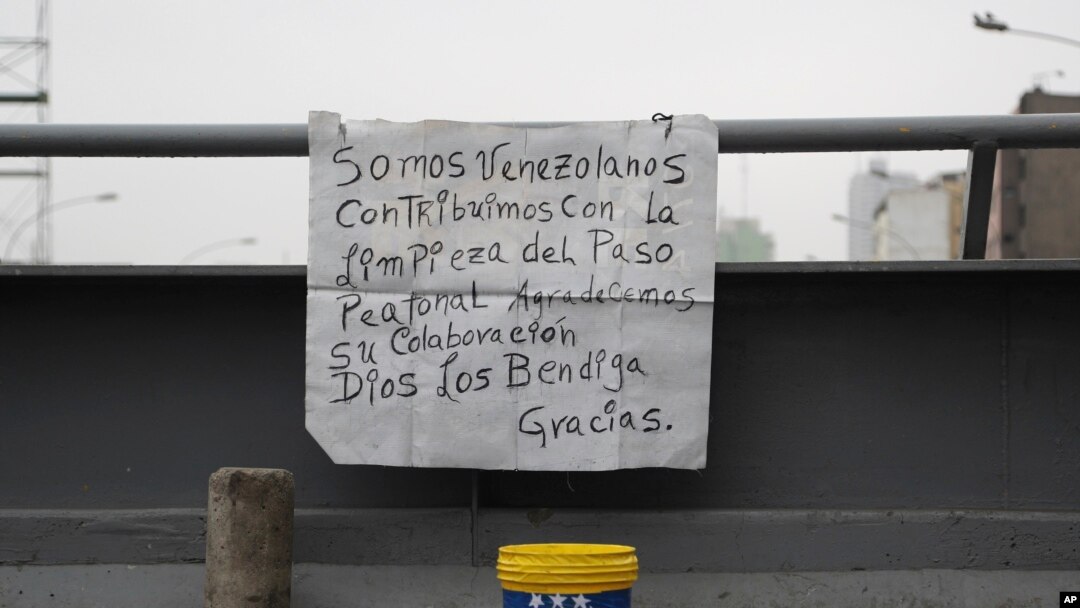 Somos Venezolanos
Contribuimos con la
Limpieza del Paso
Peatonal Agradecemos
su Colaboración
Dios los Bendiga
Gracias.
AP